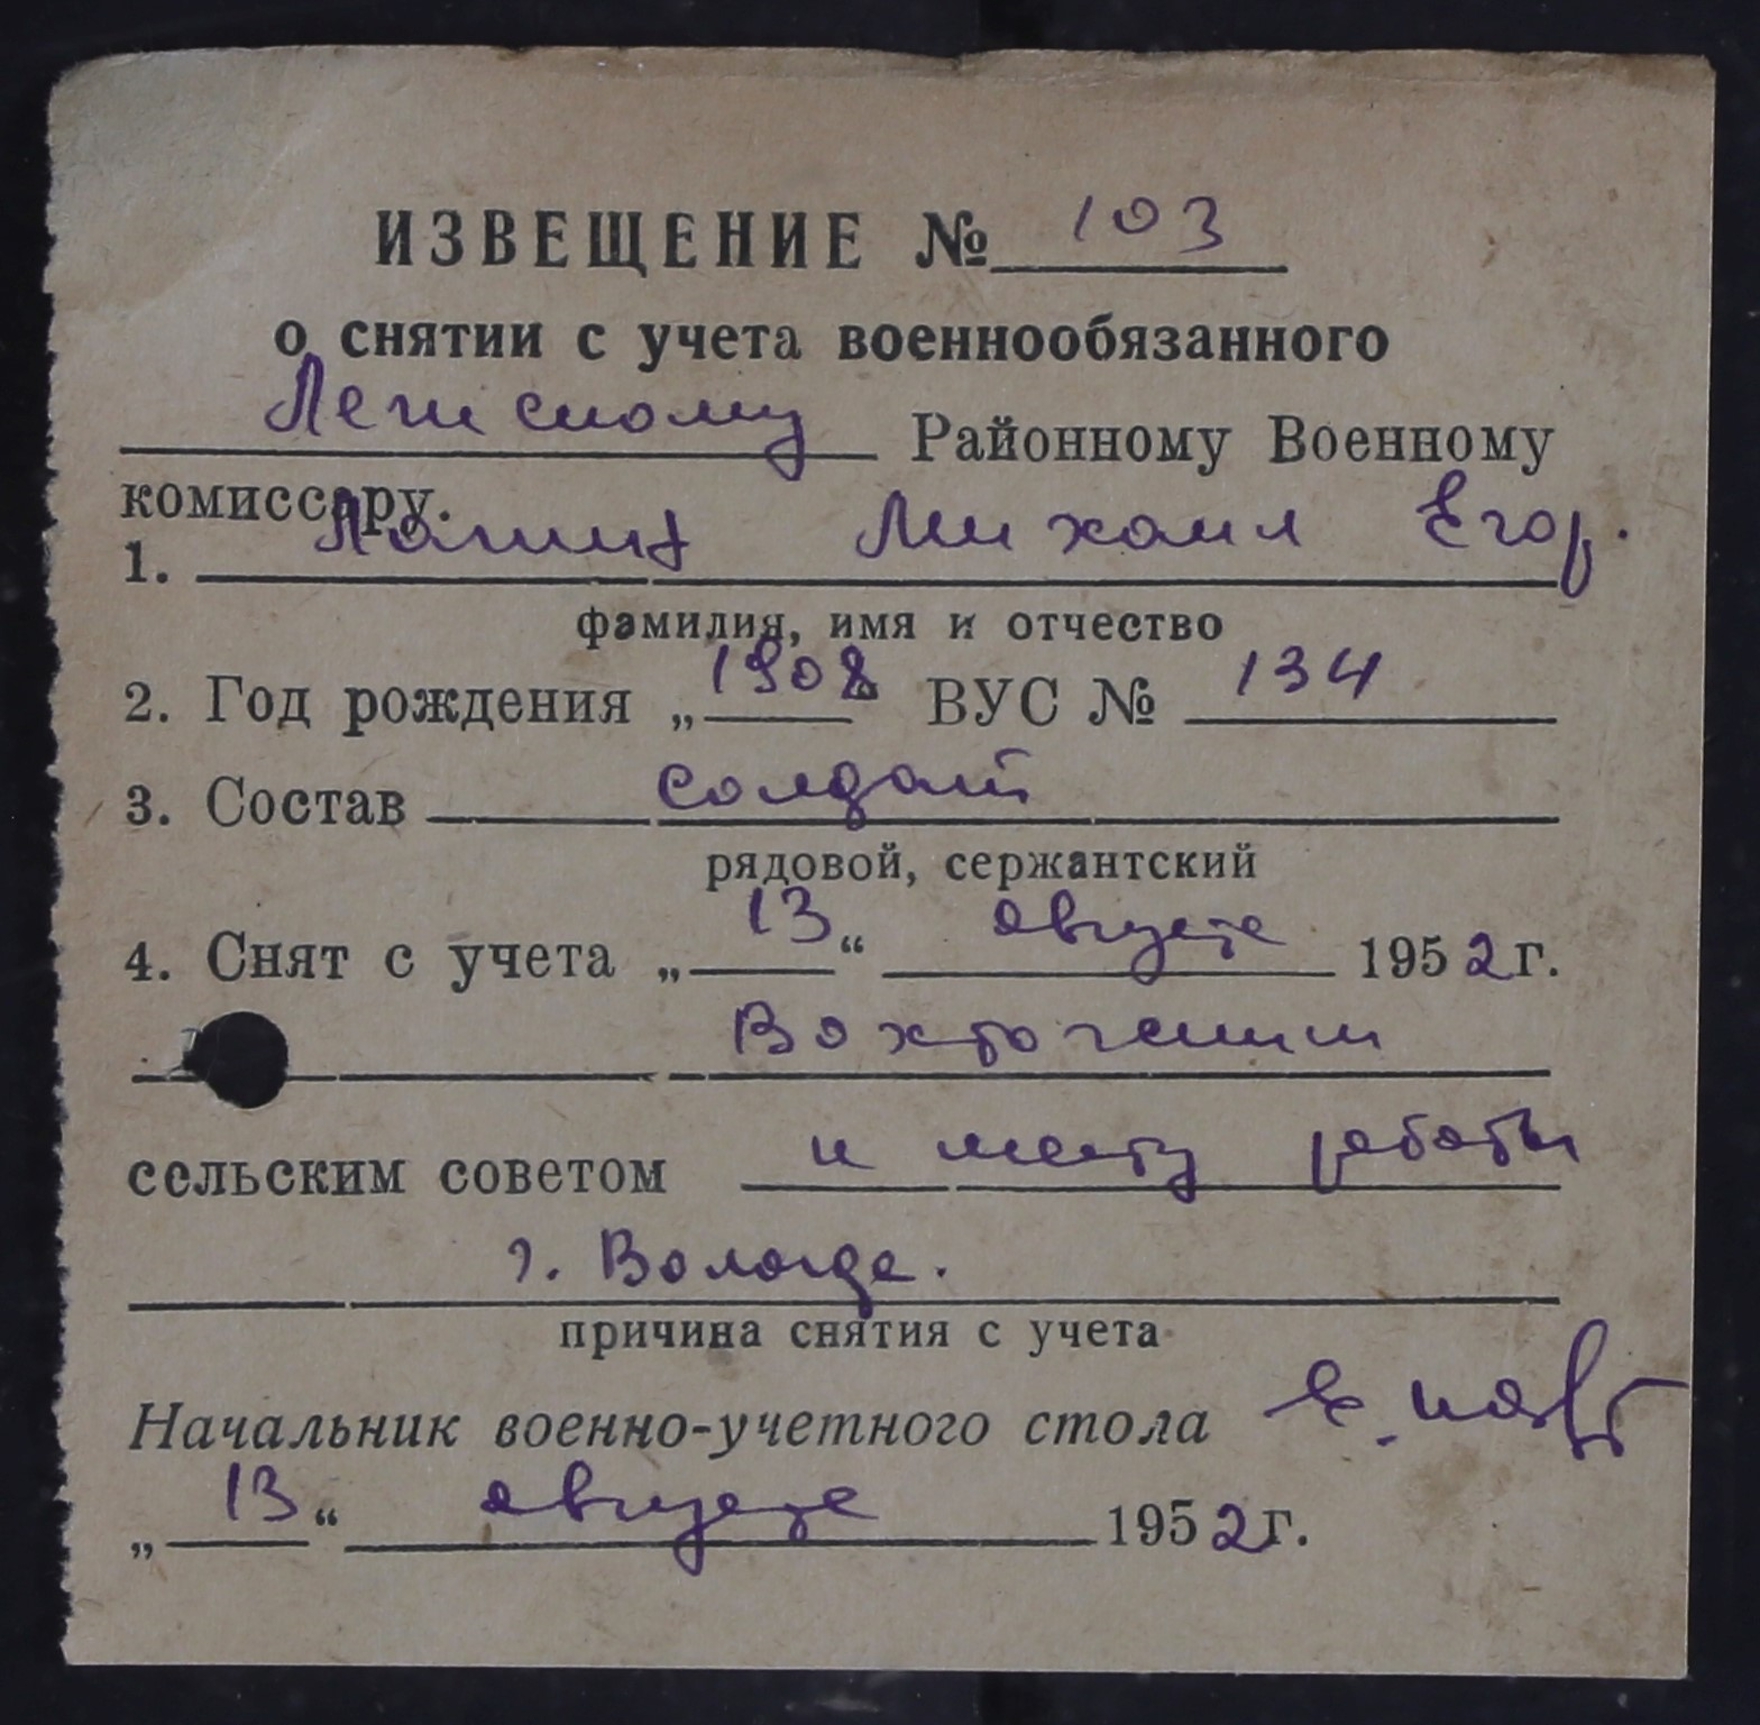 ИЗВЕЩЕНИЕ № 103
о снятии с учета военнообязанного
Районному Военному
комиссару.
1. Михаил Егор.
фамилия, имя и отчество
2. Год рождения „1908“ ВУС № 134
3. Состав солдат
рядовой, сержантский
4. Снят с учета „13“ августа 1952 г.
Вохтогским
сельским советом к месту работы
г. Вологда.
причина снятия с учета
Начальник военно-учетного стола
„13“ августа 1952 г.